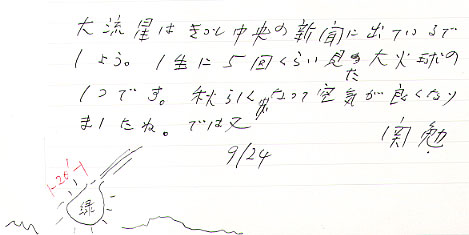 大流星はきっと中央の新聞に出ているで
しょう。1生に5回くらい見た大火球の
1つです。秋らしくなって空気が良くなり
ましたね。では又
9/24 関 勉
25′
緑